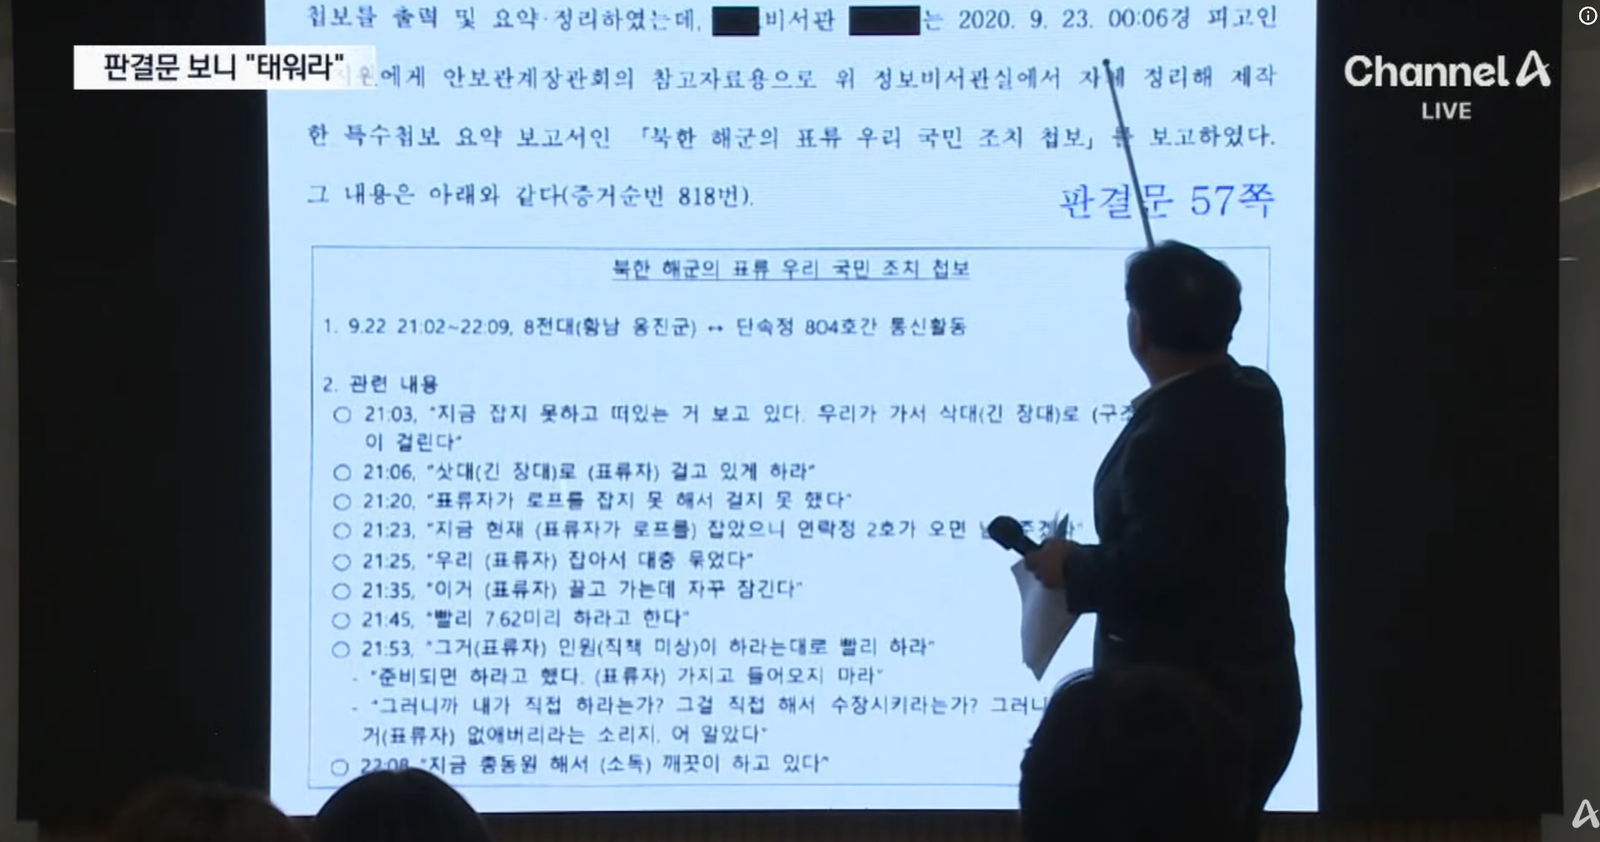 첩보를 출력 및 요약·정리하였는데, 비서관 는 2020. 9. 23. 00:06경 피고인
판결문 보니 "태워라"
에게 안보관계장관회의 참고자료용으로 위 정보비서관실에서 자체 정리해 제작
Channel A
LIVE
한 특수첩보 요약 보고서인 「북한 해군의 표류 우리 국민 조치 첩보」를 보고하였다.
그 내용은 아래와 같다(증거순번 818번).
판결문 57쪽
북한 해군의 표류 우리 국민 조치 첩보
1. 9.22 21:02~22:09, 8전대(황남 옹진군) ↔ 단속정 804호간 통신활동
2. 관련 내용
○ 21:03, "지금 잡지 못하고 떠있는 거 보고 있다. 우리가 가서 삭대(긴 장대)로 (구조
이 걸린다"
○ 21:06, "삿대(긴 장대)로 (표류자) 걸고 있게 하라"
○ 21:20, "표류자가 로프를 잡지 못 해서 걸지 못 했다"
○ 21:23, "지금 현재 (표류자가 로프를) 잡았으니 연락정 2호가 오면
○ 21:25, "우리 (표류자) 잡아서 대충 묶었다"
○ 21:35, "이거 (표류자) 끌고 가는데 자꾸 잠긴다"
○ 21:45, "빨리 7.62미리 하라고 한다"
○ 21:53, "그거(표류자) 인원(직책 미상)이 하라는대로 빨리 하라"
- "준비되면 하라고 했다. (표류자) 가지고 들어오지 마라"
- "그러니까 내가 직접 하라는가? 그걸 직접 해서 수장시키라는가? 그러니
거(표류자) 없애버리라는 소리지. 어 알았다"
○ 22:08, "지금 총동원 해서 (소독) 깨끗이 하고 있다"